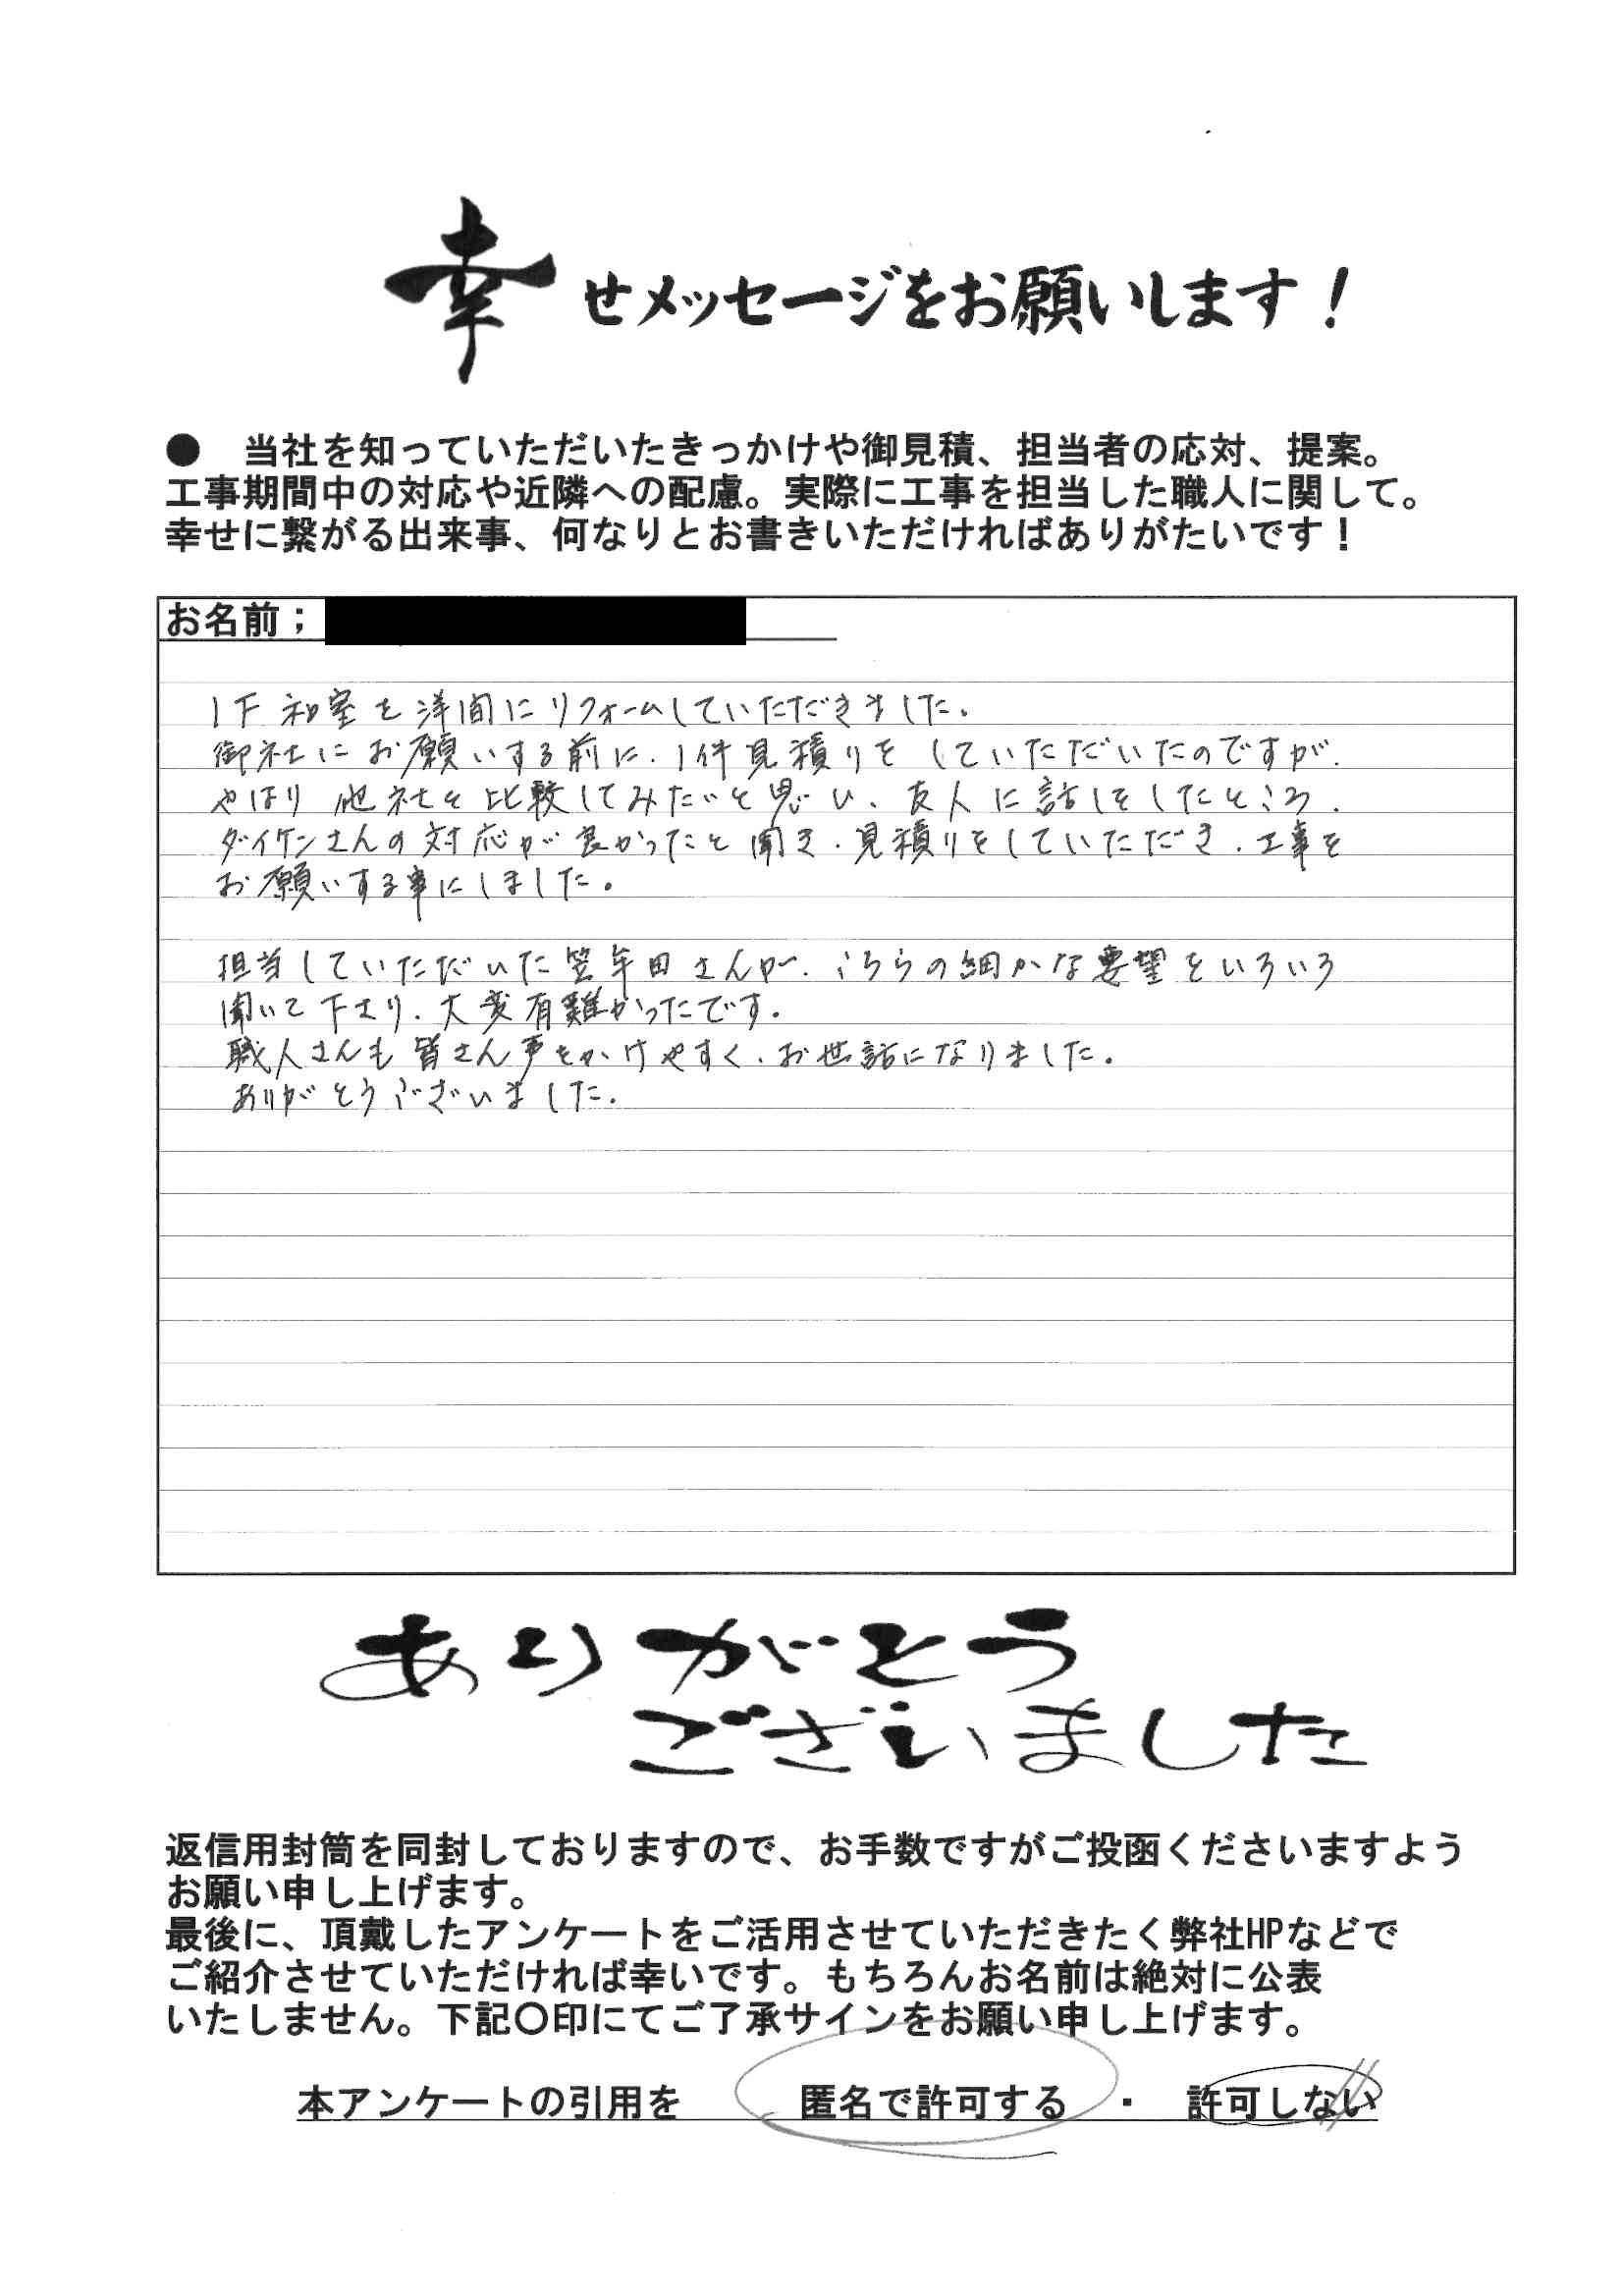 幸せメッセージをお願いします！
●　当社を知っていただいたきっかけや御見積、担当者の応対、提案。
工事期間中の対応や近隣への配慮。実際に工事を担当した職人に関して。
幸せに繋がる出来事、何なりとお書きいただければありがたいです！
お名前；
1F 和室を洋間にリフォームしていただきました。
御社にお願いする前に、1件見積りをしていただいたのですが、
やはり他社を比較してみたいと思い、友人に話しをしたところ、
ダイケンさんの対応が良かったと聞き、見積りをしていただき、工事を
お願いする事にしました。
担当していただいた笠牟田さんが、こちらの細かな要望をいろいろ
聞いて下さり、大変有難かったです。
職人さんも皆さん声をかけやすく、お世話になりました。
ありがとうございました。
ありがとう
ございました
返信用封筒を同封しておりますので、お手数ですがご投函くださいますよう
お願い申し上げます。
最後に、頂戴したアンケートをご活用させていただきたく弊社HPなどで
ご紹介させていただければ幸いです。もちろんお名前は絶対に公表
いたしません。下記〇印にてご了承サインをお願い申し上げます。
本アンケートの引用を　匿名で許可する　・　許可しない